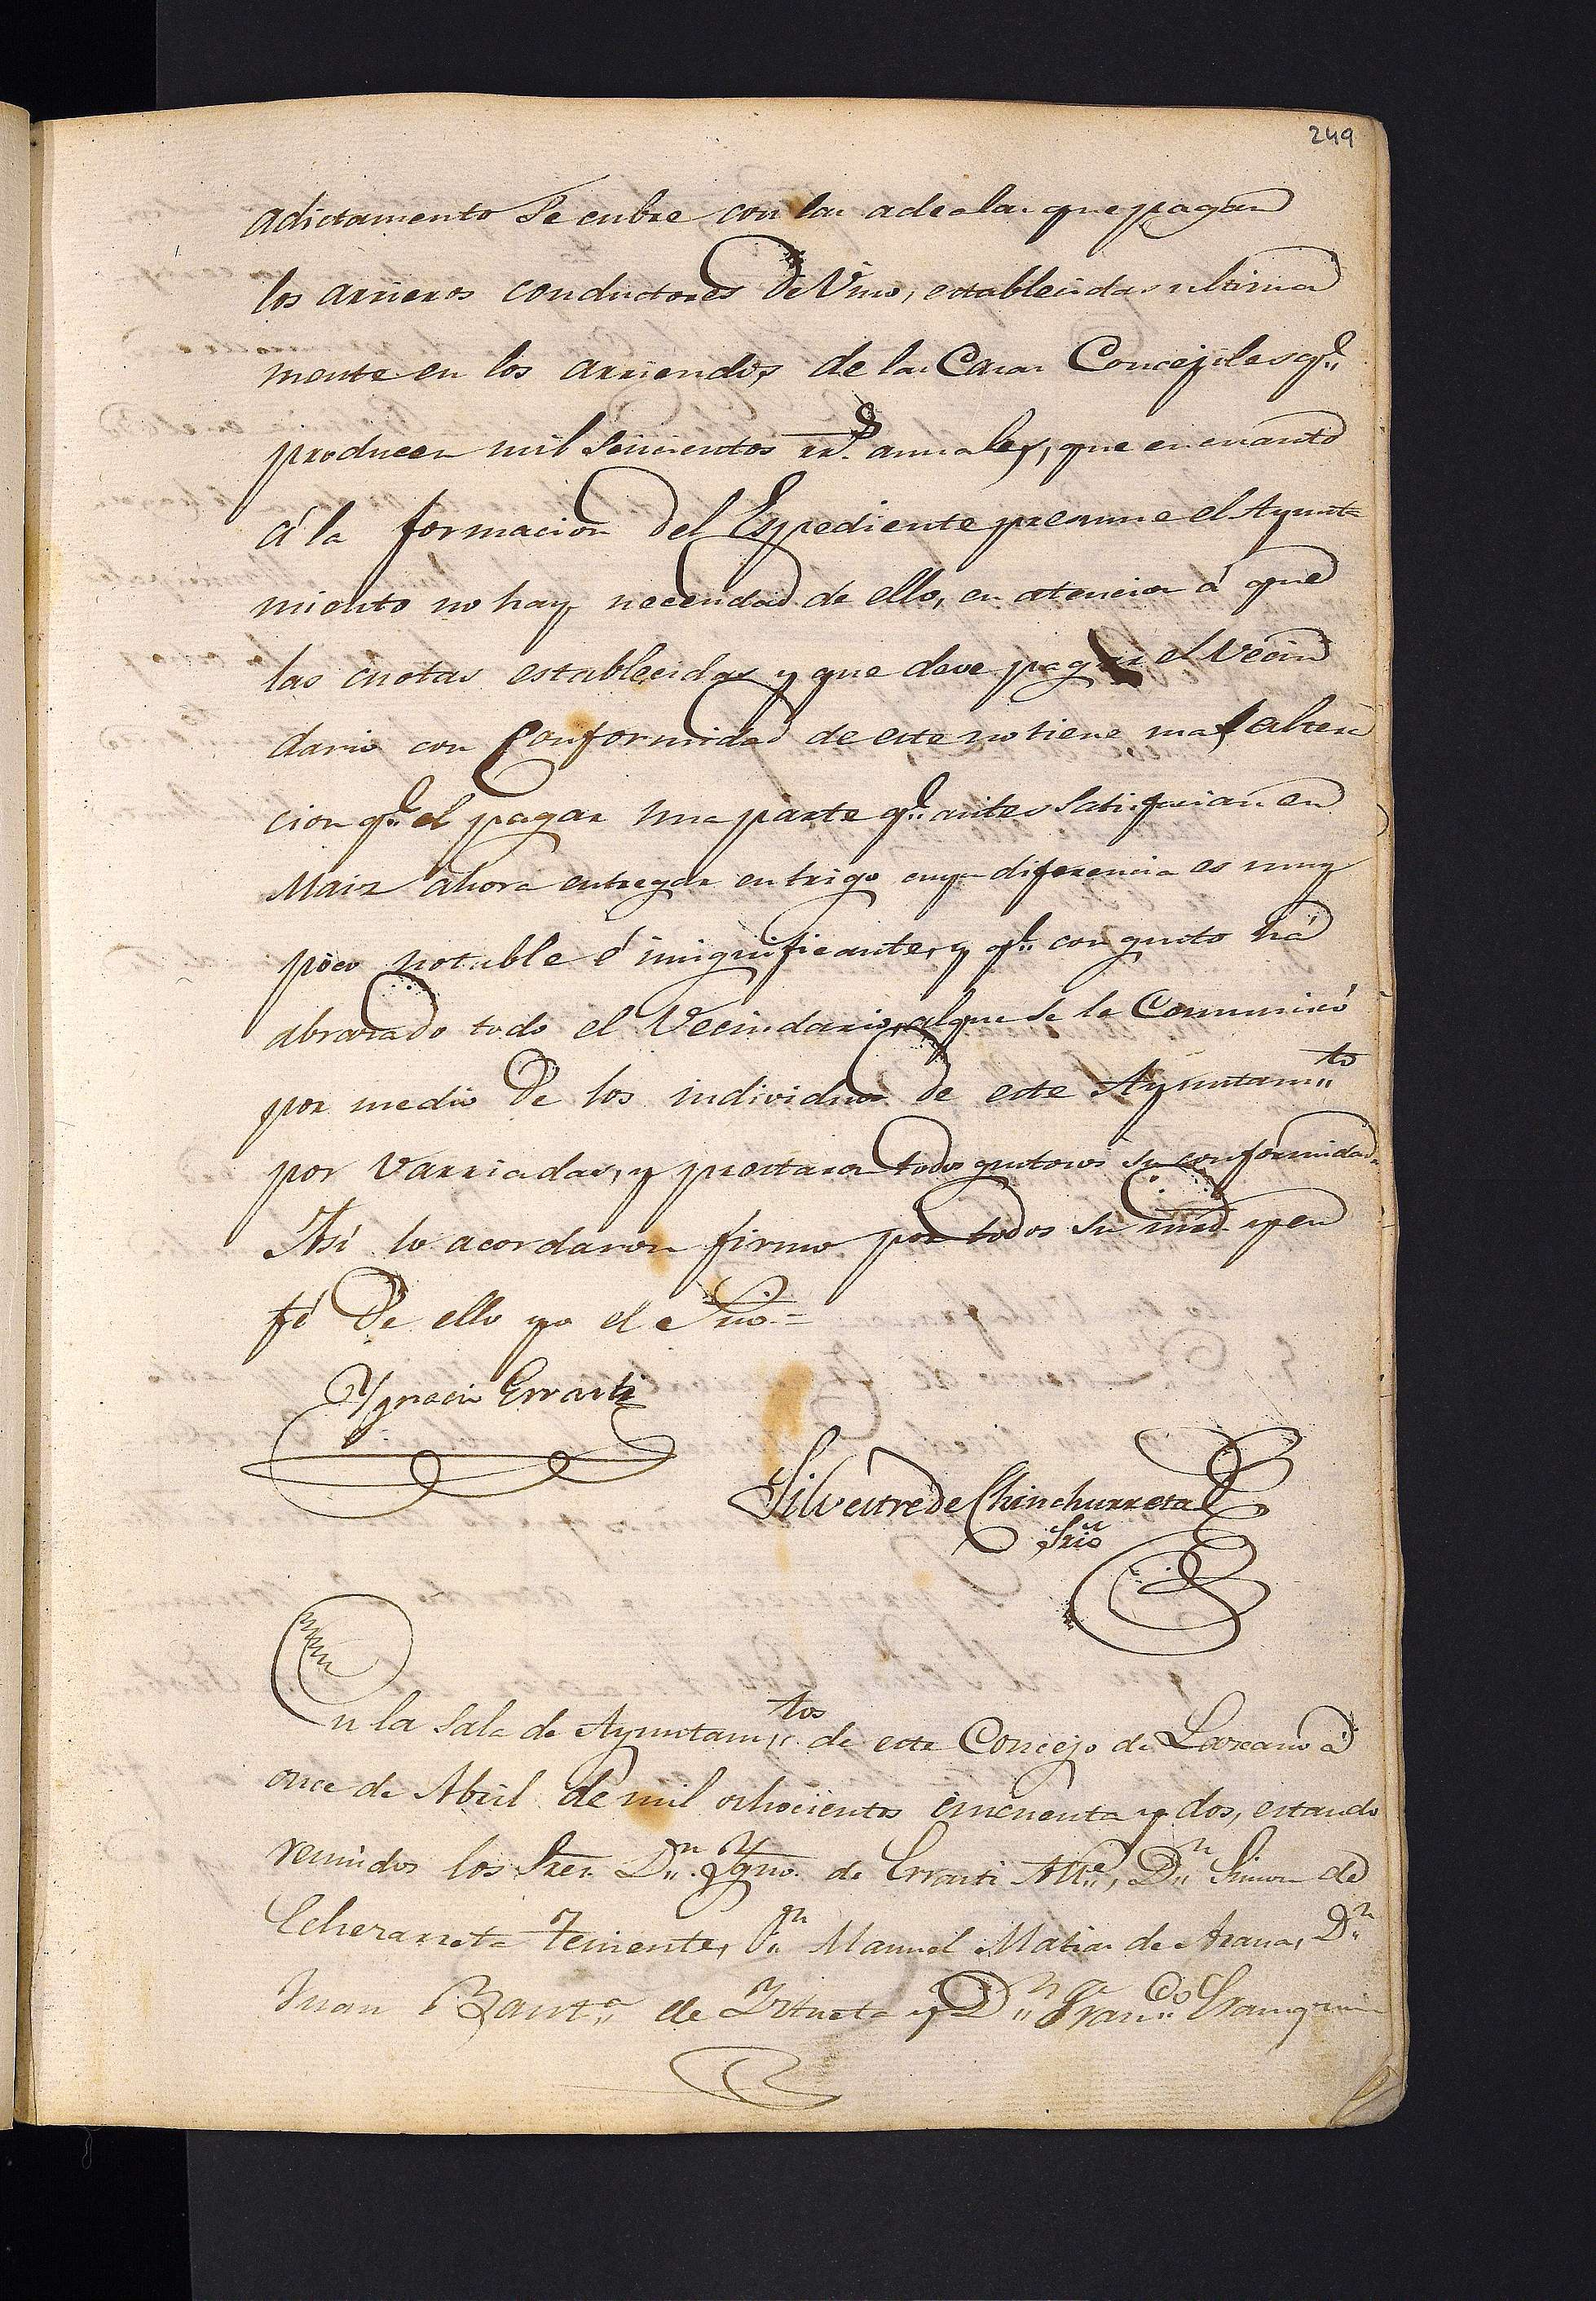 249
adictamento se cubre con las adealas que pagan
los arrieros conductores de Vino, establecidas ultima
mente en los arriendos de las Casas Concejiles q.e
producen mil seiscientos rr.s annales, que en cuanto
á la formacion del Espediente presume el Ayunta
miento no hay necesidad de ello, en atencion á que
las cuotas establecidas y que deve pagar el Vecin
dario con Conformidad de este no tiene mas altera
cion q.e el pagar una parte q.e antes satisfacian en
Maiz ahora entregar en trigo cuya diferencia es muy
poco notable é insignificante, y q.e con gusto há
abrazado todo el Vecindario, al que se le Comunicó
por medio de los individuos de este Ayuntam.to
por Varriadas, y prestaron todos gustosos su conformidad.
Asi lo acordaron firmo por todos su mrd. y en
fé de ello yo el Srio.=
Ygnacio Errarti
Silvestre de Chinchurreta
Srio
En la Sala de Ayuntam.tos de este Concejo de Lazcano á
once de Abril de mil ochocientos cincuenta y dos, estando
reunidos los Sres. D.n Ygno. de Errarti Alc.e, D.n Simon de
Echezarreta Teniente, D.n Manuel Matias de Arana, D.n
Juan Baut.a de Irtueta y D.n Fran.co